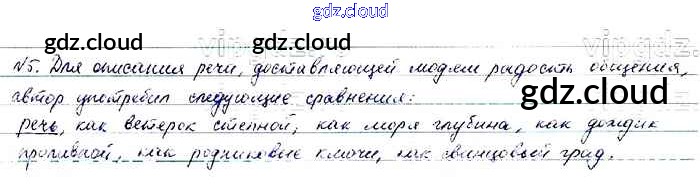 gdz.cloud
gdz.cloud gdz.cloud
№5. Для описания речи, доставляющей людям радость общения,
автор употребил следующие сравнения:
gdz.cloud
речь, как ветерок степной, как моря глубина, как дождик
проливной, как родниковые ключи, как свинцовый град.